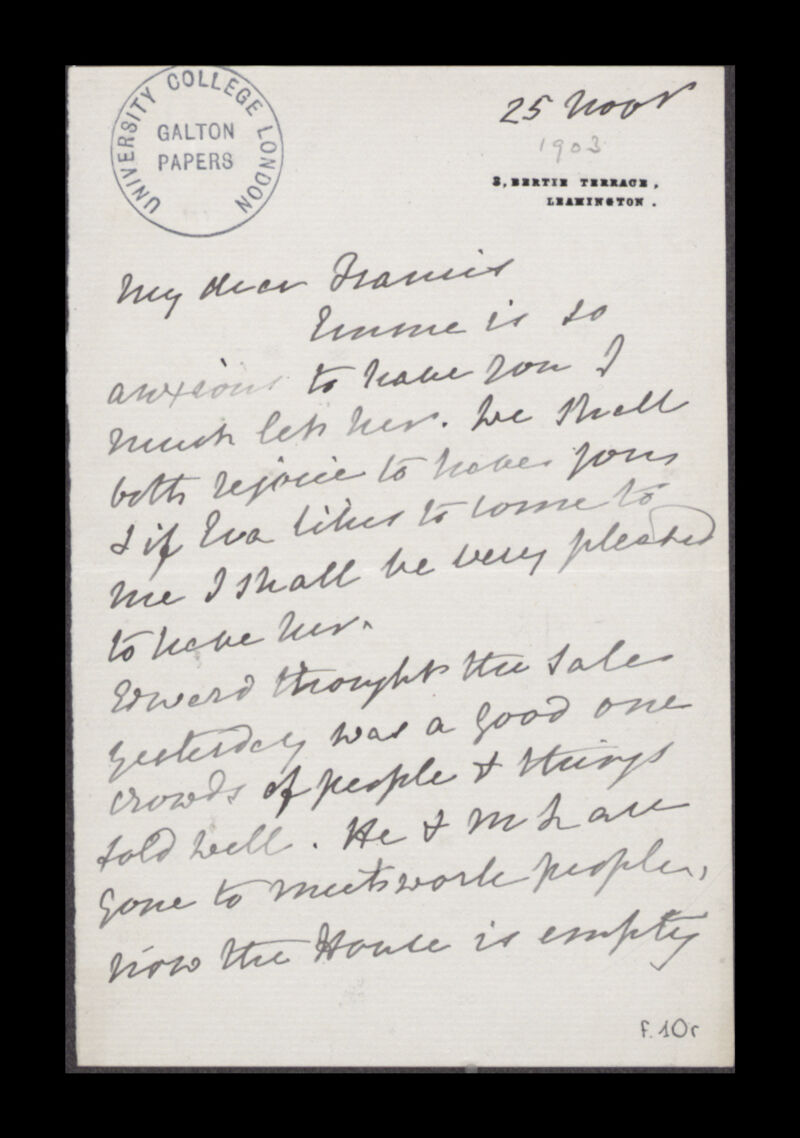 UNIVERSITY COLLEGE LONDON
GALTON
PAPERS
25 Novr
1903
3, BERTIE TERRACE,
LEAMINGTON.
My dear Francis
Emme is so
anxious to have you I
must let her. We shall
both rejoice to have you
& if Eva likes to come to
me I shall be very pleased
to have her.
Edward thought the sale
yesterday was a good one
crowds of people & things
sold well. He & M L are
gone to meet work people,
now the House is empty
f.10r